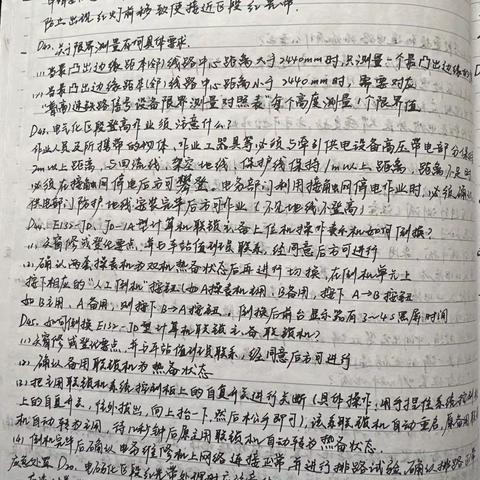 防止出现红灯前移致使接近区段红光带.
D02.关于限界测量有何具体要求.
(1).当最凸出边缘距本(邻)线路中心距离大于2440mm时,只测量一个最凸出边缘的
(2).当最凸出边缘距本(邻)线路中心距离小于2440mm时,需要对应
"普(高)速铁路信号设备限界测量对照表"每个高度测量1个限界值
D03.电气化区段登高作业须注意什么?
作业人员及所携带的物体、作业工器具等必须与牵引供电设备高压带电部分保持
2m以上距离,与回流线、架空地线、保护线保持1m以上距离,距离不足时
必须在接触网停电后方可攀登,电务部门利用接触网停电作业时,必须确认
供电部门防护地线安装完毕后方可作业(不见地线不登高)
D04.EI32-JD、JD-1A型计算机联锁主备上位机操作表示机如何倒换?
(1).天窗修或登记要点,并与车站值班员联系,经同意后方可进行
(2).确认两套操表机为双机热备状态后再进行切换,在倒机单元上
按下相应的"人工倒机"按钮(如A操表机主用,B备用,按下A→B按钮
如B主用,A备用,则按下B→A按钮),倒换后前台显示器有3~4S黑屏时间
D05.如何倒换EI32-JD型计算机联锁主备联锁机?
(1)天窗修或登记要点,并与车站值班员联系,经同意后方可进行
(2).确认备用联锁机为热备状态
(3).把主用联锁机系统控制板上的自复开关进行关断(具体操作:用手捏住系统控制
上的自复开关,往外拔出,向上抬一下,然后松开即可),该系联锁机自动重启,原备用联
机自动转为主用,待10秒钟后原主用联锁机自动转为热备状态.
(4)倒机完毕后确认电务维修机上网络连接正常并进行排路试验,确认排路正常
应急处置 D20.电码化区段红光带处理时